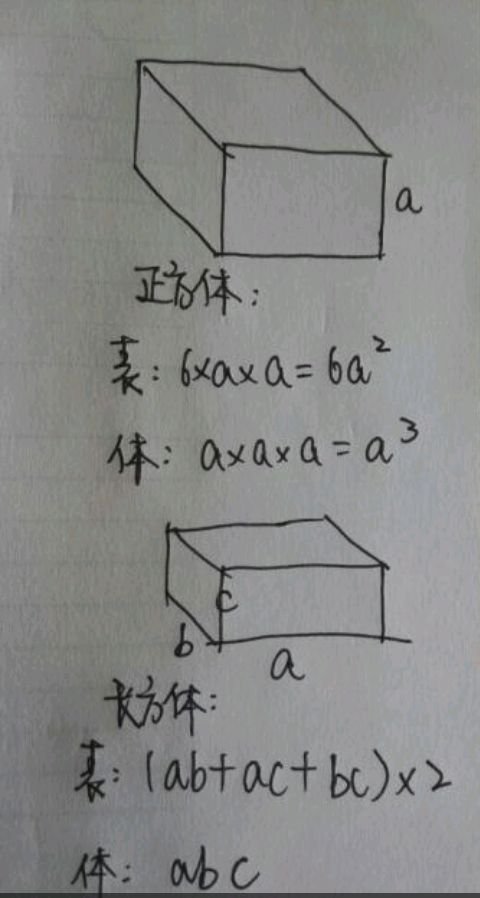 a
正方体：
表：6×a×a=6a²
体：a×a×a=a³
c
b
a
长方体：
表：(ab+ac+bc)×2
体：abc